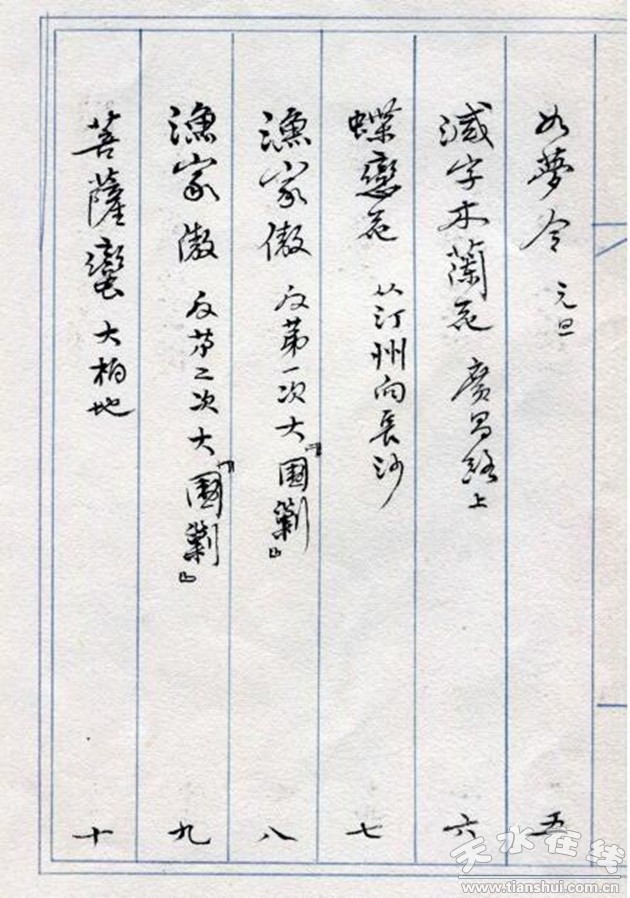 如夢令 元旦 五
减字木蘭花 廣昌路上 六
蝶戀花 从汀州向長沙 七
漁家傲 反第一次大『圍剿』 八
漁家傲 反第二次大『圍剿』 九
菩薩蠻 大柏地 十
天水在线
www.tianshui.com.cn